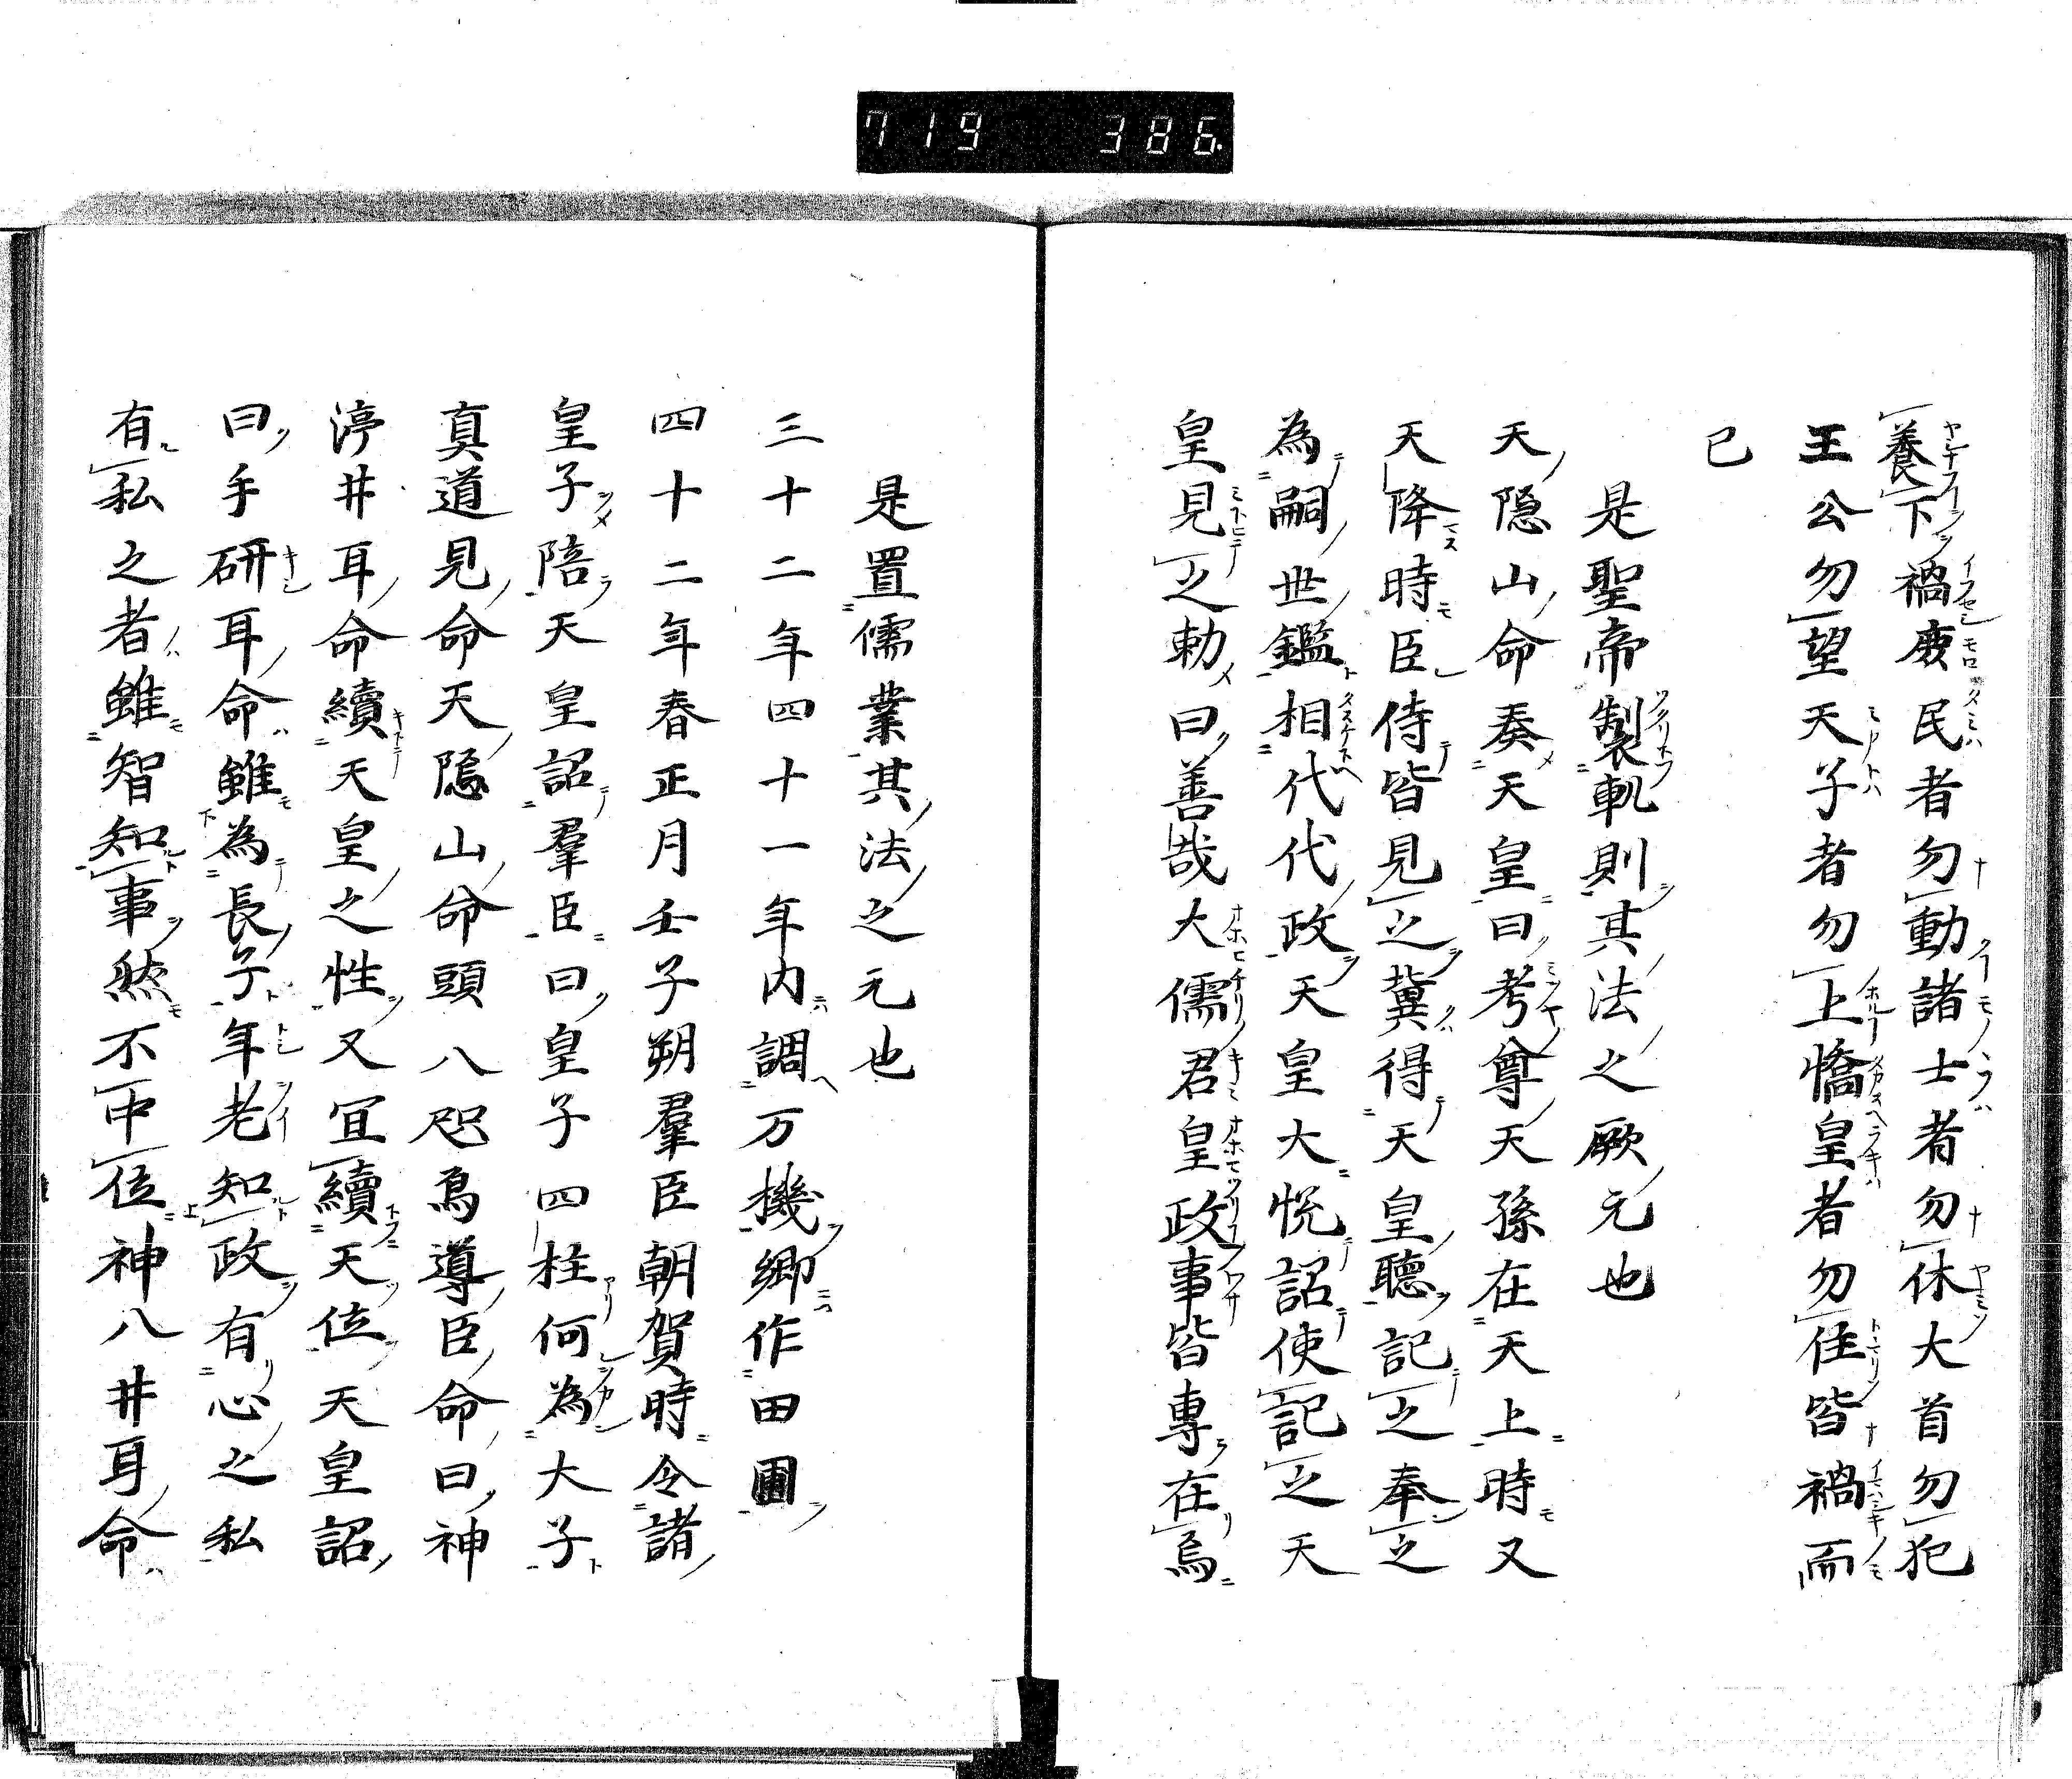 719 386.
養下禍庶民者勿動諸士者勿休大首勿犯
王公勿望天子者勿上憍皇者勿住皆禍而
已
是聖帝製軌則其法之厥元也
天隠山命奏天皇曰考尊天孫在天上時又
天降時臣侍皆見之冀得天皇聴記之奉之
為嗣世鑑相代代政天皇大悦詔使記之天
皇見之勅曰善哉大儒君皇政事皆專在焉
是置儒業其法之元也
三十二年四十一年内調万機郷作田圃
四十二年春正月壬子朔羣臣朝賀時令諸
皇子陪天皇詔羣臣曰皇子四柱何為大子
真道見命天隠山命頭八咫烏導臣命曰神
渟井耳命續天皇之性又宜續天位天皇詔
曰手研耳命雖為長子年老知政有心之私
有私之者雖智知事然不中位神八井耳命